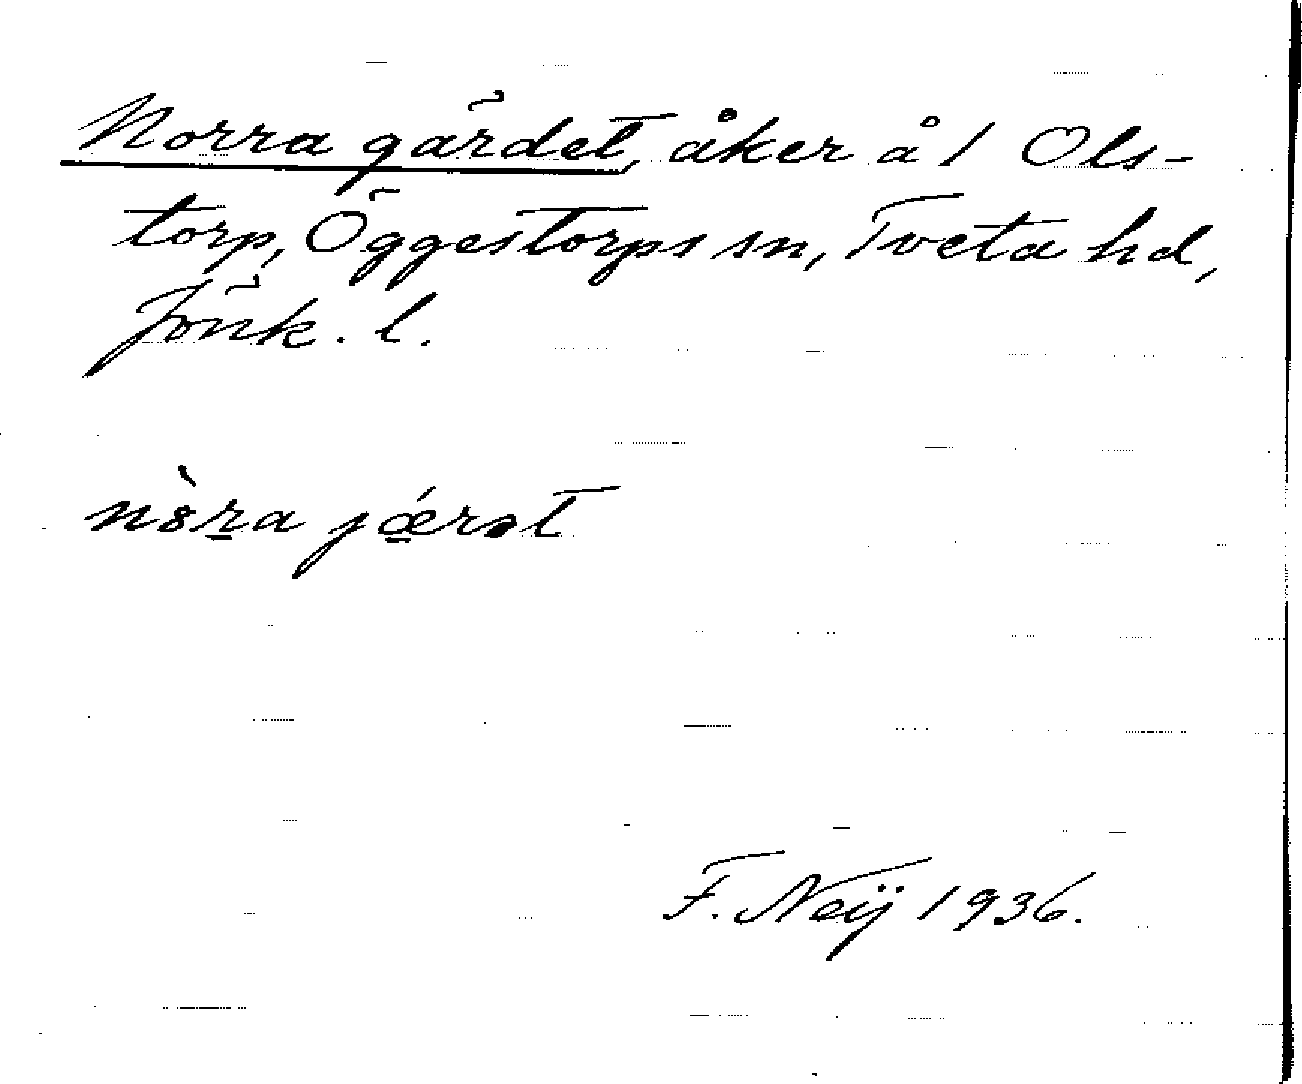 Norra gärdet, åker å 1 Ols-
torp, Öggestorps sn, Tveta hd,
Jönk. l.
F. Neij 1936.